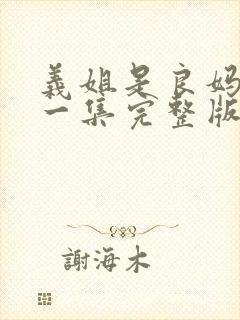 義姐是良妈
一集完整版
謝海木